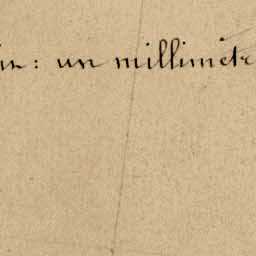 : un millimètr